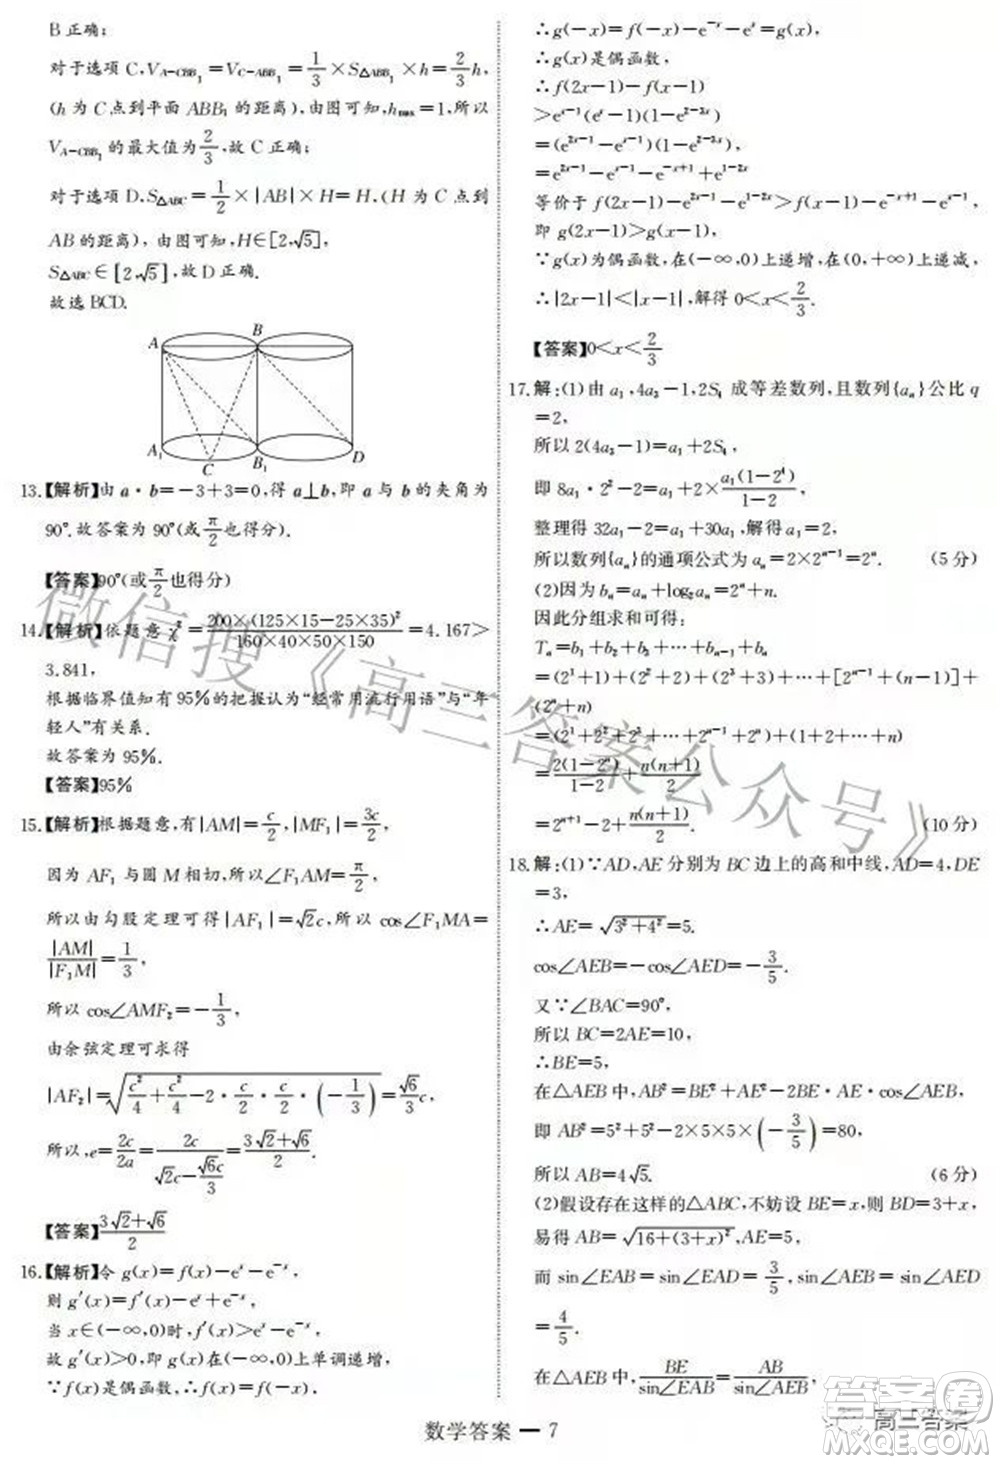 B正确;
对于选项 C, V_{A-CBB₁}=V_{C-ABB₁}=1/3×S_{△ABB₁}×h=2/3h,
(h 为 C 点到平面 ABB₁ 的距离), 由图可知, h_max=1, 所以
V_{A-CBB₁} 的最大值为2/3, 故 C 正确;
对于选项 D, S_{△ABC}=1/2×|AB|×H=H, (H 为 C 点到
AB 的距离), 由图可知, H∈[2,√5],
S_{△ABC}∈[2,√5], 故 D 正确.
故选 BCD.
A B
A₁ C B₁ D
13.【解析】由 a·b=-3+3=0, 得 a⊥b, 即 a 与 b 的夹角为
90°. 故答案为 90°(或π/2也得分).
【答案】90°(或π/2也得分)
14.【解析】依题意 χ²=200×(125×15-25×35)²/(160×40×50×150)=4.167>
3.841,
根据临界值知有 95%的把握认为“经常用流行用语”与“年
轻人”有关系.
故答案为 95%.
【答案】95%
15.【解析】根据题意, 有|AM|=c/2, |MF₁|=3c/2,
因为 AF₁ 与圆 M 相切, 所以∠F₁AM=π/2,
所以由勾股定理可得|AF₁|=√2c, 所以 cos∠F₁MA=
|AM|/|F₁M|=1/3,
所以 cos∠AMF₂=-1/3,
由余弦定理可求得
|AF₂|=√(c²/4+c²/4-2·c/2·c/2·(-1/3))=√6/3c,
所以, e=2c/2a=2c/(√2c-√6c/3)=(3√2+√6)/2.
【答案】(3√2+√6)/2
16.【解析】令 g(x)=f(x)-eˣ-e⁻ˣ,
则 g′(x)=f′(x)-eˣ+e⁻ˣ,
当 x∈(-∞,0)时, f′(x)>eˣ-e⁻ˣ,
故 g′(x)>0, 即 g(x)在(-∞,0)上单调递增,
∵f(x)是偶函数,
∴g(-x)=f(-x)-e⁻ˣ-eˣ=g(x),
∴g(x)是偶函数,
∴f(2x-1)-f(x-1)
>e^{x-1}(eˣ-1)+e^{1-2x}(1-eˣ)
=(e^{2x-1}-e^{x-1})-(e^{-x+1}-e^{1-2x})
=e^{2x-1}-e^{x-1}-e^{-x+1}+e^{1-2x}
等价于 f(2x-1)-e^{2x-1}-e^{1-2x}>f(x-1)-e^{-x+1}-e^{x-1},
即 g(2x-1)>g(x-1),
∵g(x)为偶函数, 在(-∞,0)上递增, 在(0,+∞)上递减,
∴|2x-1|<|x-1|, 解得 0<x<2/3.
【答案】0<x<2/3
17.解:(1)由 a₁,4a₃-1,2S₄ 成等差数列, 且数列{aₙ}公比 q
=2,
所以 2(4a₃-1)=a₁+2S₄,
即 8a₁·2²-2=a₁+2×a₁(1-2⁴)/(1-2),
整理得 32a₁-2=a₁+30a₁, 解得 a₁=2,
所以数列{aₙ}的通项公式为 aₙ=2×2ⁿ⁻¹=2ⁿ. (5分)
(2)因为 bₙ=aₙ+log₂aₙ=2ⁿ+n.
因此分组求和可得:
Tₙ=b₁+b₂+b₃+⋯+bₙ₋₁+bₙ
=(2¹+1)+(2²+2)+(2³+3)+⋯+[2ⁿ⁻¹+(n-1)]+
(2ⁿ+n)
=(2¹+2²+2³+⋯+2ⁿ)+(1+2+3+⋯+n)
=2(1-2ⁿ)/(1-2)+n(n+1)/2
=2ⁿ⁺¹-2+n(n+1)/2. (10分)
18.解:(1)∵AD,AE 分别为 BC 边上的高和中线, AD=4, DE
=3,
∴AE=√(3²+4²)=5.
cos∠AEB=-cos∠AED=-3/5.
又∵∠BAC=90°,
所以 BC=2AE=10,
∴BE=5,
在△AEB 中, AB²=BE²+AE²-2BE·AE·cos∠AEB,
即 AB²=5²+5²-2×5×5×(-3/5)=80,
所以 AB=4√5. (6分)
(2)假设存在这样的△ABC, 不妨设 BE=x, 则 BD=3+x,
易得 AB=√(16+(3+x)²),
而 sin∠EAB=sin∠EAD=3/5, sin∠AEB=sin∠AED
=4/5.
在△AEB 中, BE/sin∠EAB=AB/sin∠AEB
数学答案 — 7
微信搜《高三答案公众号》
高三答案
答案圈
MXQE.COM